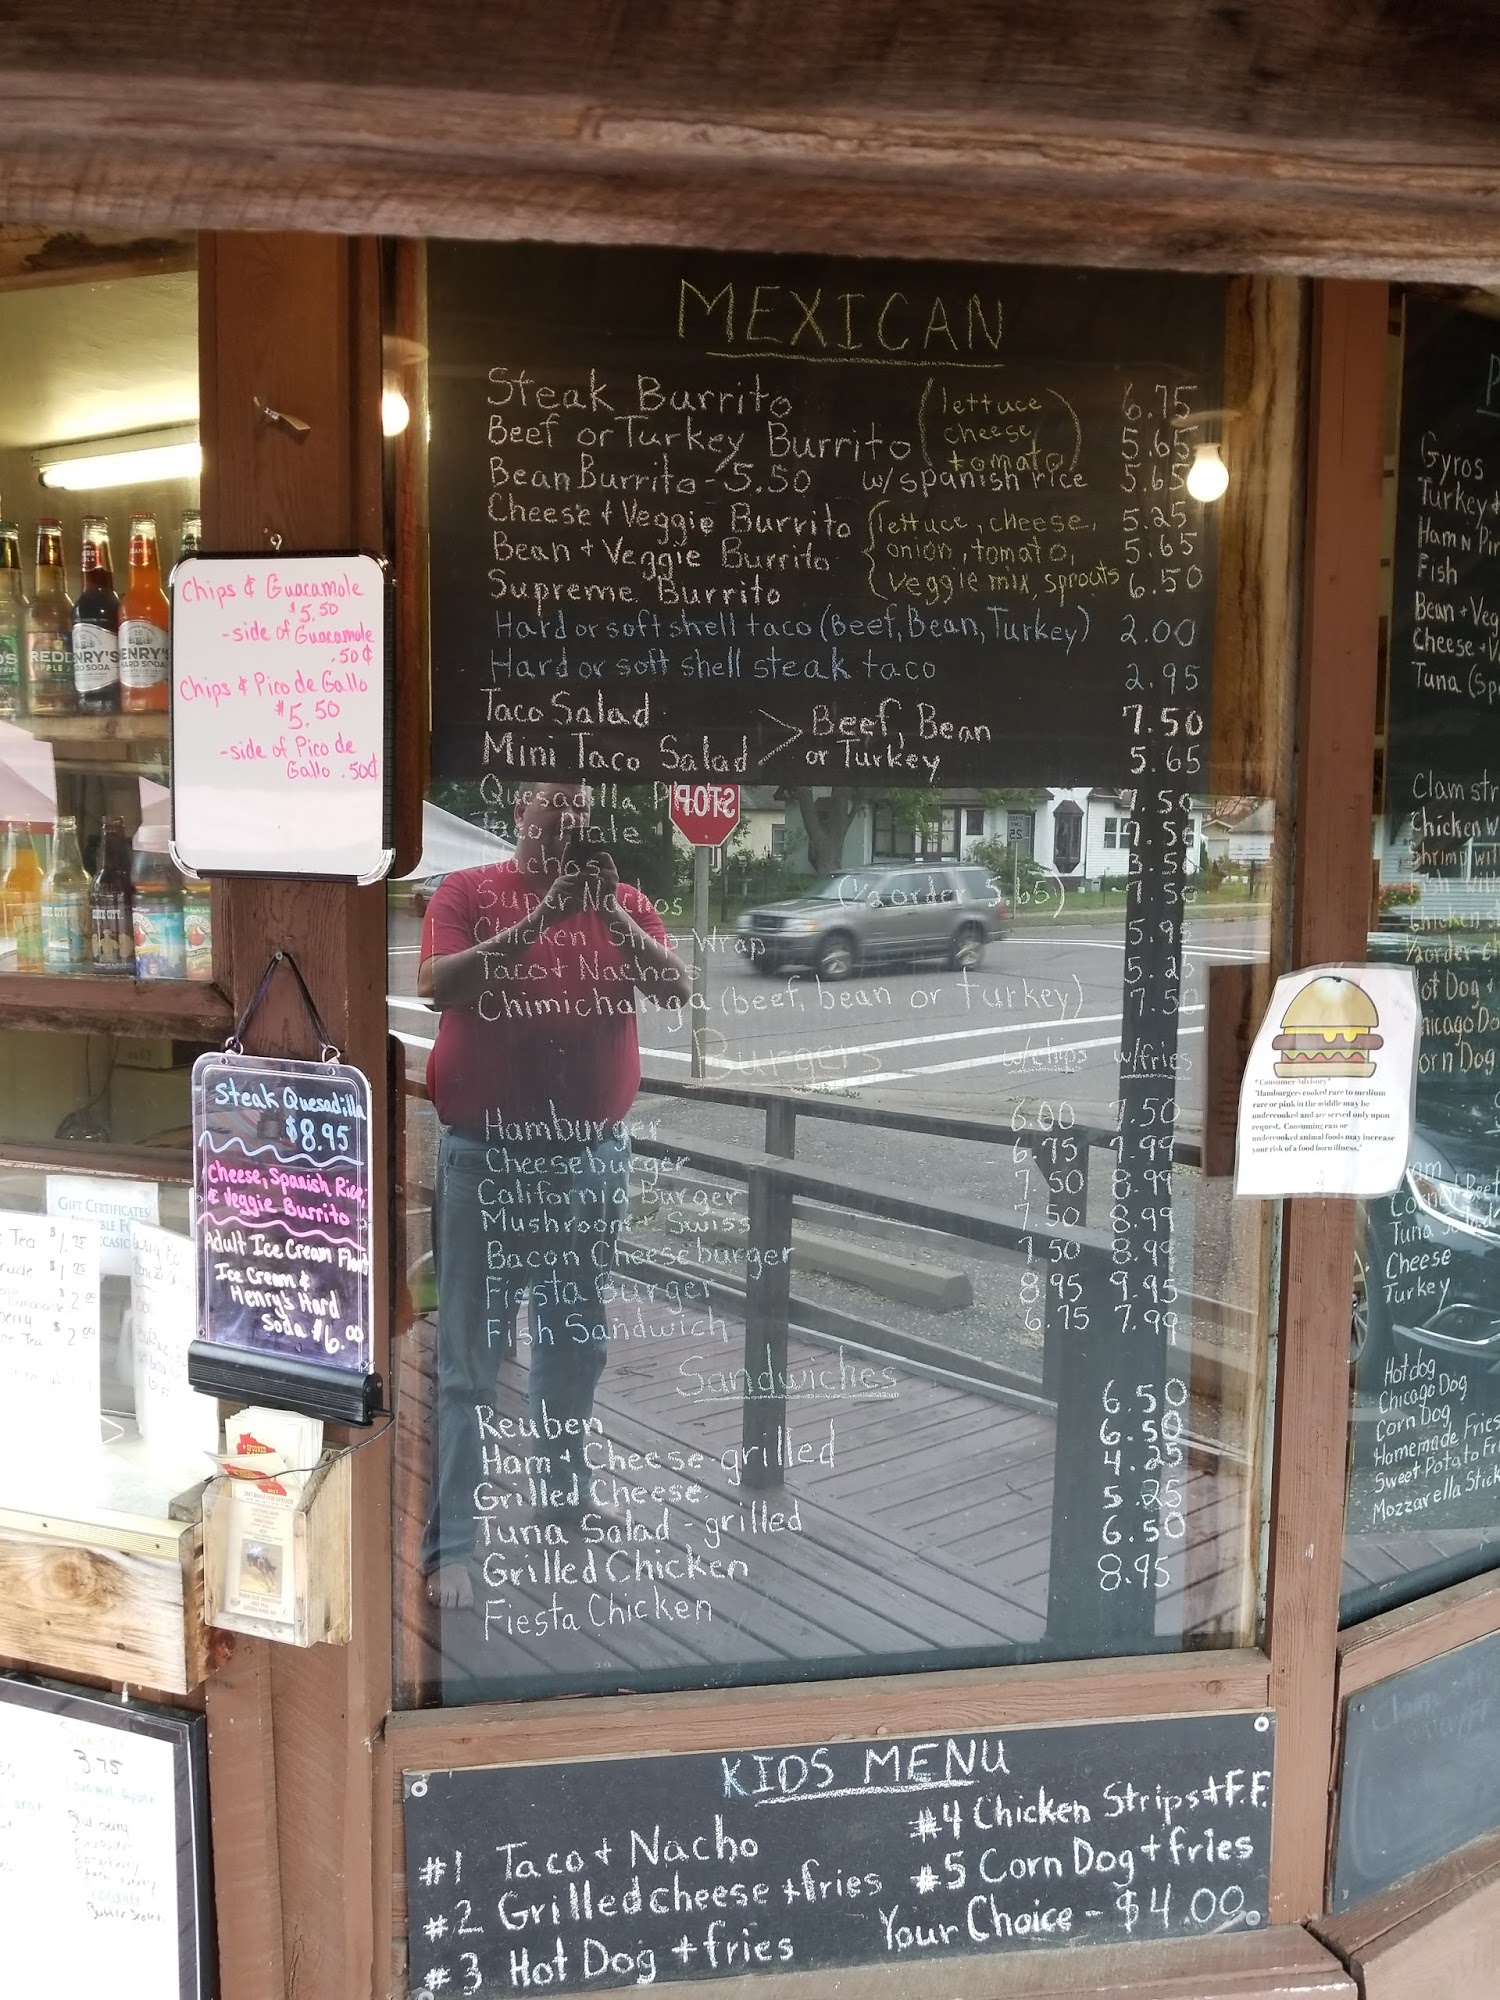 MEXICAN
Steak Burrito 6.75
Beef or Turkey Burrito 5.65
(lettuce
cheese
tomato)
Bean Burrito - 5.50 w/spanish rice 5.65
Cheese + Veggie Burrito 5.25
Bean + Veggie Burrito 5.65
Supreme Burrito 6.50
{lettuce, cheese,
onion, tomato,
veggie mix, sprouts
Hard or soft shell taco (Beef, Bean, Turkey) 2.00
Hard or soft shell steak taco 2.95
Taco Salad 7.50
Mini Taco Salad 5.65
> Beef, Bean
or Turkey
Quesadilla Plate 7.50
Taco Plate 7.50
Nachos 3.50
Super Nachos (1/2 order 5.65) 7.50
Chicken Strip Wrap 5.95
Taco + Nachos 5.25
Chimichanga (beef, bean or turkey) 7.50
Burgers w/chips w/fries
Hamburger 6.00 7.50
Cheeseburger 6.75 7.99
California Burger 7.50 8.99
Mushroom + Swiss 7.50 8.99
Bacon Cheeseburger 7.50 8.99
Fiesta Burger 8.95 9.95
Fish Sandwich 6.75 7.99
Sandwiches
Reuben 6.50
Ham + Cheese - grilled 6.50
Grilled Cheese 4.25
Tuna Salad - grilled 5.25
Grilled Chicken 6.50
Fiesta Chicken 8.95
KIDS MENU
#1 Taco + Nacho
#2 Grilled cheese + fries
#3 Hot Dog + fries
#4 Chicken Strips + F.F.
#5 Corn Dog + fries
Your Choice - $4.00
Chips & Guacamole
$5.50
-side of Guacamole
.50¢
Chips & Pico de Gallo
$5.50
-side of Pico de
Gallo .50¢
Steak Quesadilla
$8.95
Cheese, Spanish Rice,
& Veggie Burrito
Adult Ice Cream Float
Ice Cream &
Henry's Hard
Soda $6.00
GIFT CERTIFICATES
Tea $1.75
3.75
STOP
*Consumer Advisory*
"Hamburgers cooked rare to medium
rare or pink in the middle may be
undercooked and are served only upon
request. Consuming raw or
undercooked animal foods may increase
your risk of a food born illness."
Gyros
Turkey
Ham N
Fish
Bean + Veg
Cheese + V
Tuna
Clam
Chicken
Tuna
Cheese
Turkey
Hotdog
Chicago Dog
Corn Dog
Homemade Fries
Sweet Potato Fr
Mozzarella Stick